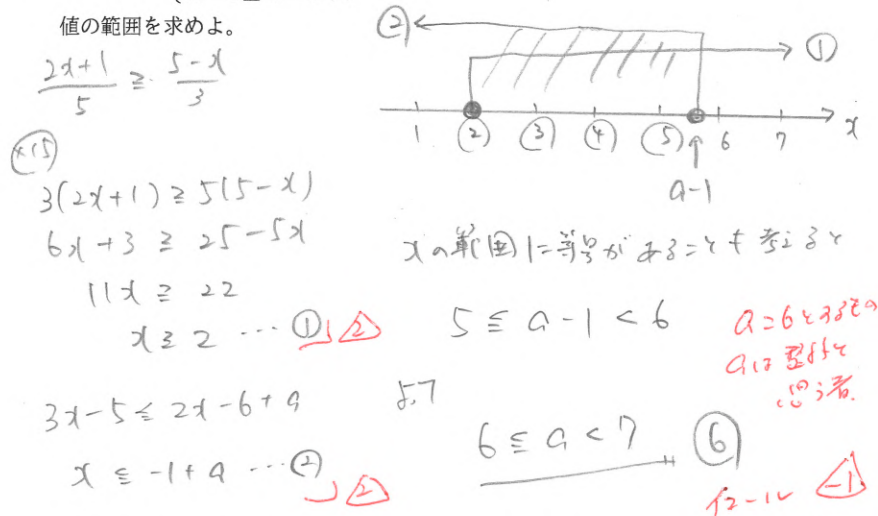 値の範囲を求めよ。
(2x+1)/5 ≧ (5-x)/3
×15
3(2x+1) ≧ 5(5-x)
6x+3 ≧ 25-5x
11x ≧ 22
x ≧ 2 … ① 2
3x-5 ≦ 2x-6+a
x ≦ -1+a … ② 2
② ①
1 ② ③ ④ ⑤ 6 7 x
a-1
xの範囲に等号があることも考えると
5 ≦ a-1 < 6
よって
6 ≦ a < 7 ⑥
a=6とするその
aは
思う者.
イコール -1